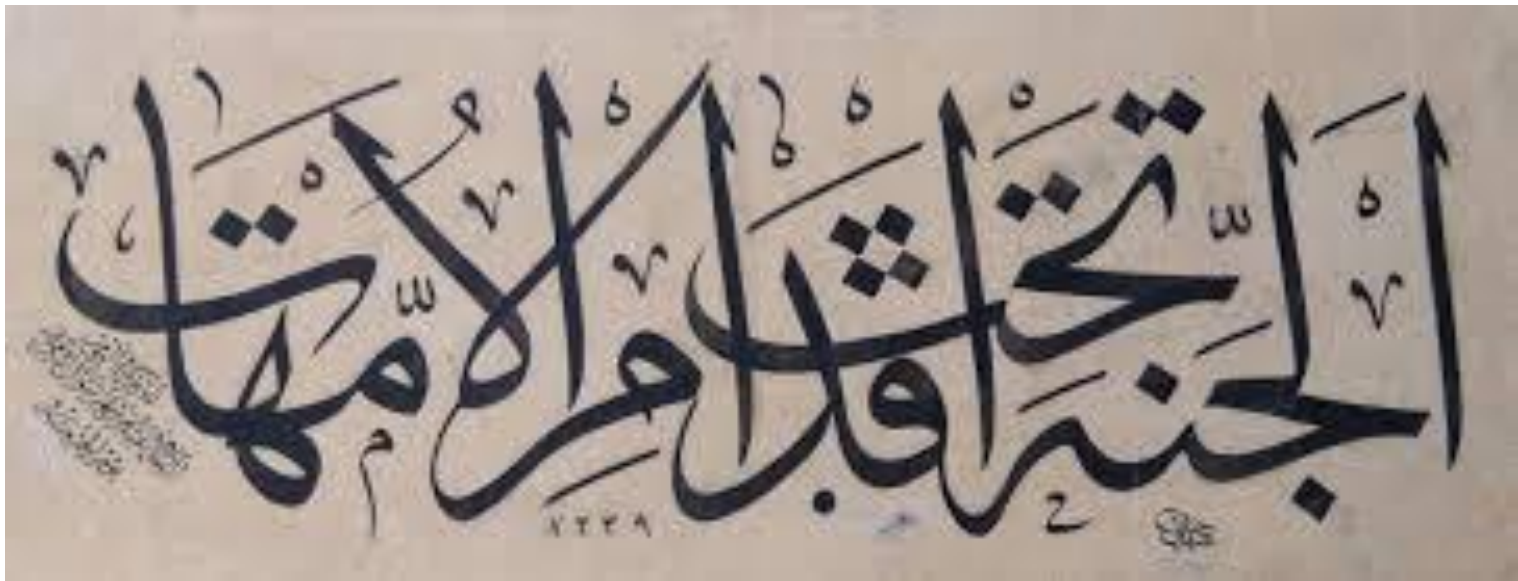 الجنة تحت أقدام الأمهات
١٣٣٩